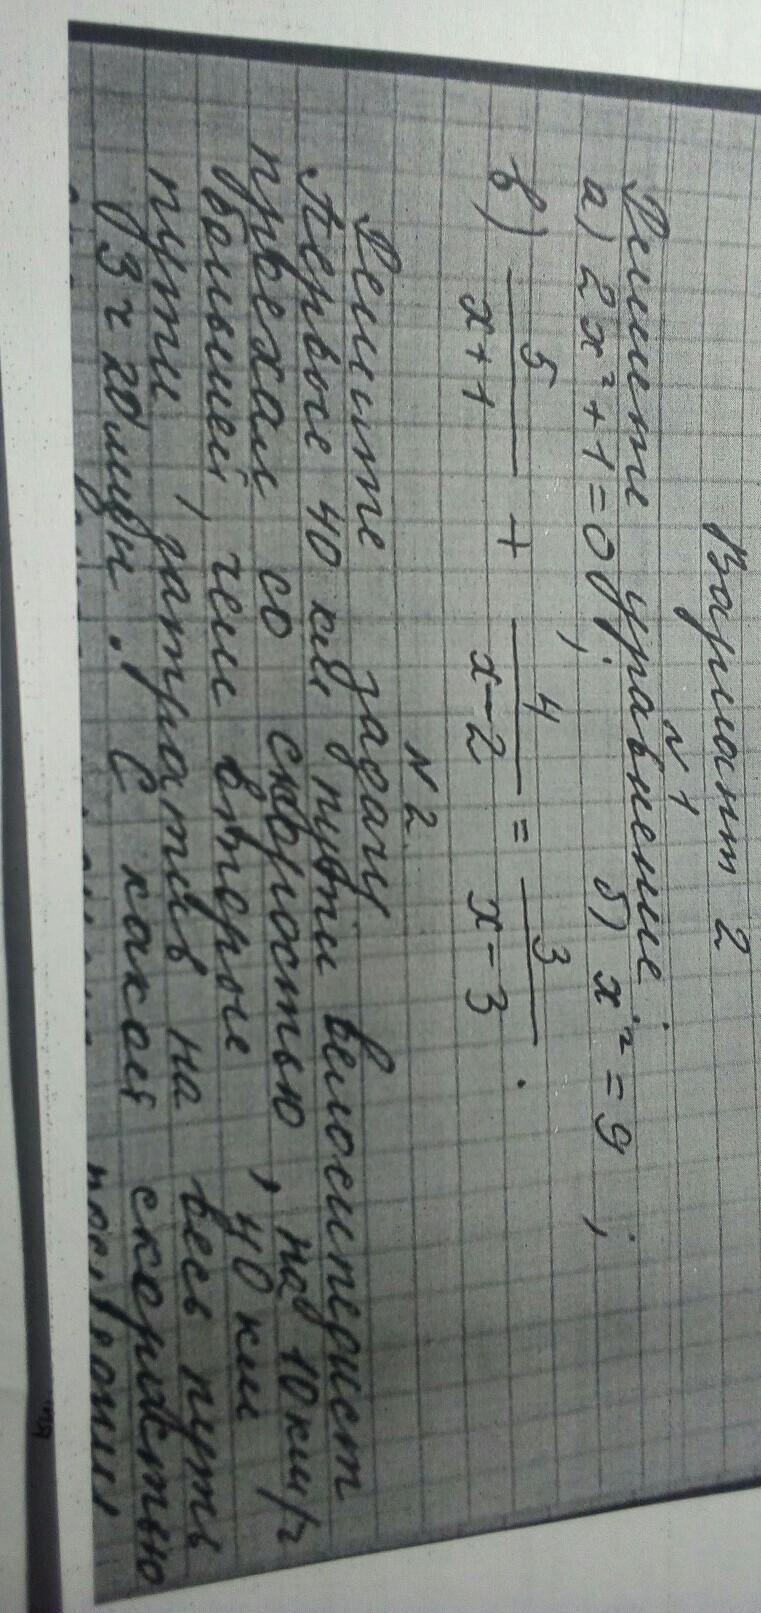 Вариант 2
N 1
Решите уравнение:
а) 2x² + 1 = 0 ; б) x² = 9 ;
в) 5/(x+1) + 4/(x-2) = 3/(x-3) .
N 2
Решите задачу
Первые 40 км пути велосипедист
проехал со скоростью, на 10 км/ч
большей, чем вторые 40 км
пути, затратив на весь путь
3 ч 20 мин. С какой скоростью